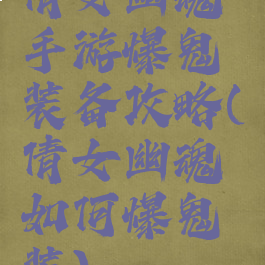 倩女幽魂
手游爆鬼
装备攻略(
倩女幽魂
如何爆鬼
装)